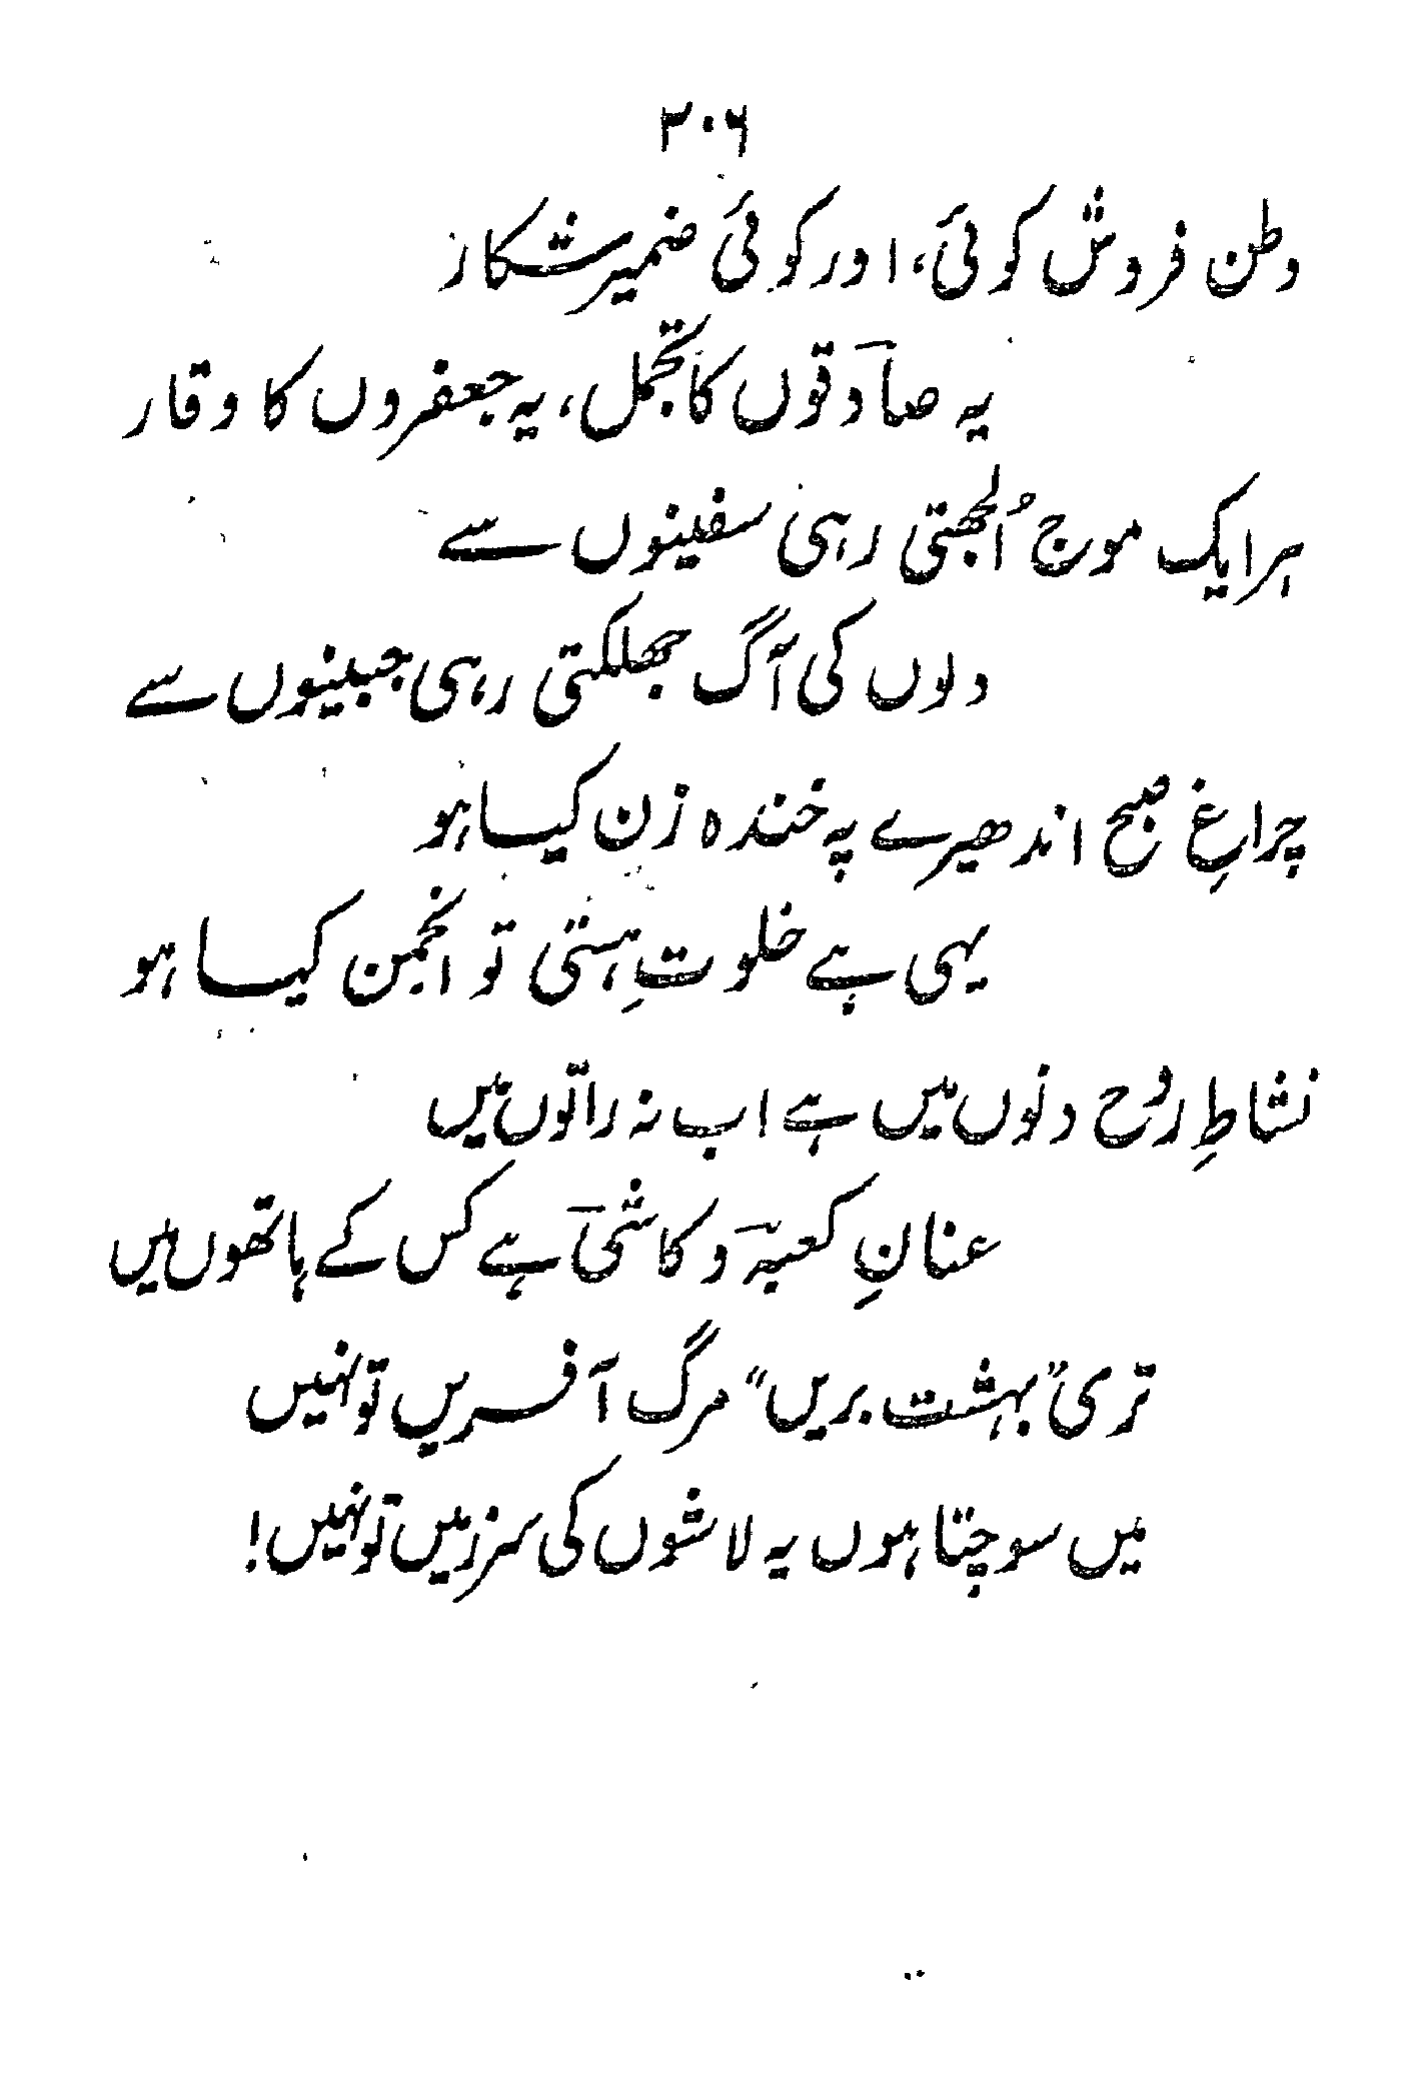 ۳۰۶
وطن فروش کوئی، اور کوئی ضمیر شکار
یہ صادقوں کا تجمل، یہ جعفروں کا وقار
ہر ایک موج اُلجھتی رہی سفینوں سے
دلوں کی آگ جھلکتی رہی جبینوں سے
چراغِ صبح اندھیرے پہ خندہ زن کیسا ہو
یہی ہے خلوتِ ہستی تو انجمن کیسا ہو
نشاطِ رُوح دنوں میں ہے اب نہ راتوں میں
عنانِ کعبہ و کاشی ہے کس کے ہاتھوں میں
تری "بہشت بریں" مرگ آفریں تو نہیں
میں سوچتا ہوں یہ لاشوں کی سرزمیں تو نہیں!